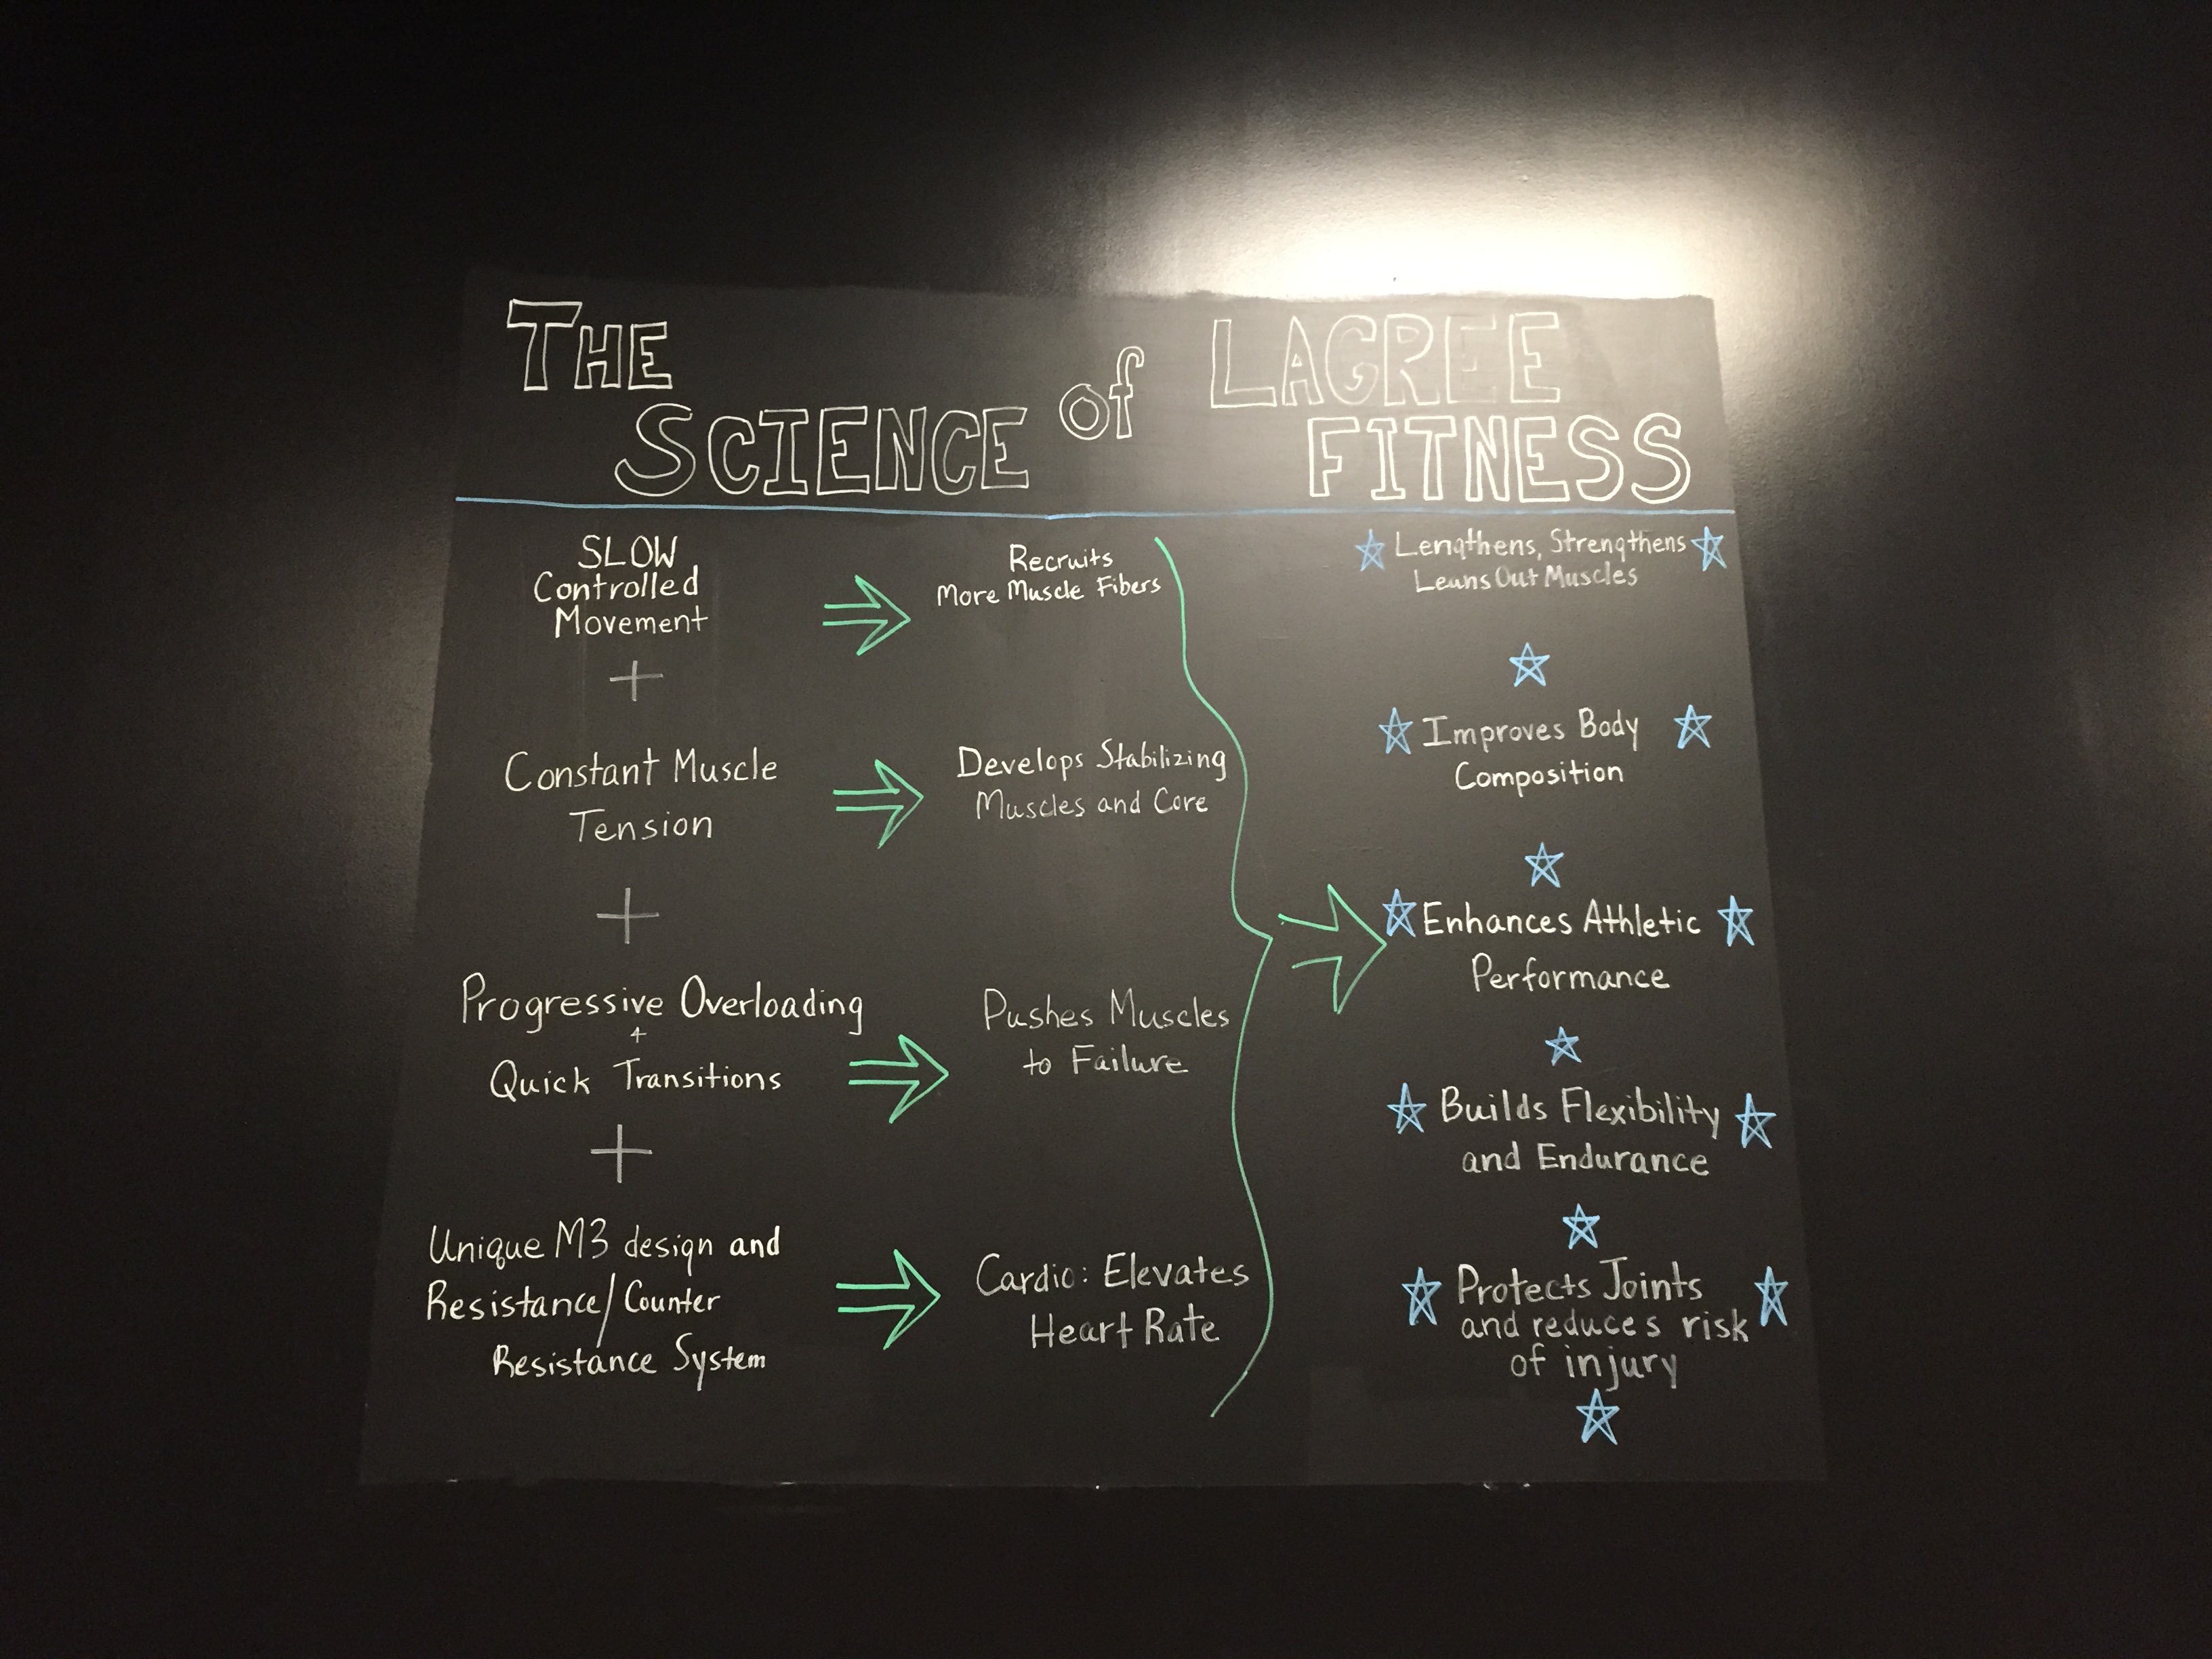 THE
SCIENCE of
LAGREE
FITNESS
SLOW
Controlled
Movement
+
Constant Muscle
Tension
+
Progressive Overloading
+
Quick Transitions
+
Unique M3 design and
Resistance/Counter
Resistance System
Recruits
More Muscle Fibers
Develops Stabilizing
Muscles and Core
Pushes Muscles
to Failure
Cardio: Elevates
Heart Rate
Lengthens, Strengthens
Leans Out Muscles
Improves Body
Composition
Enhances Athletic
Performance
Builds Flexibility
and Endurance
Protects Joints
and reduces risk
of injury